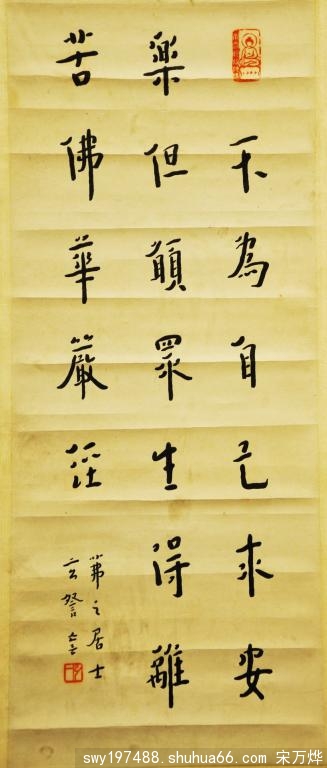 不為自己求安
樂但願眾生得離
苦佛華嚴經
茀之居士
swy197488.shuhua66.com 宋万烨